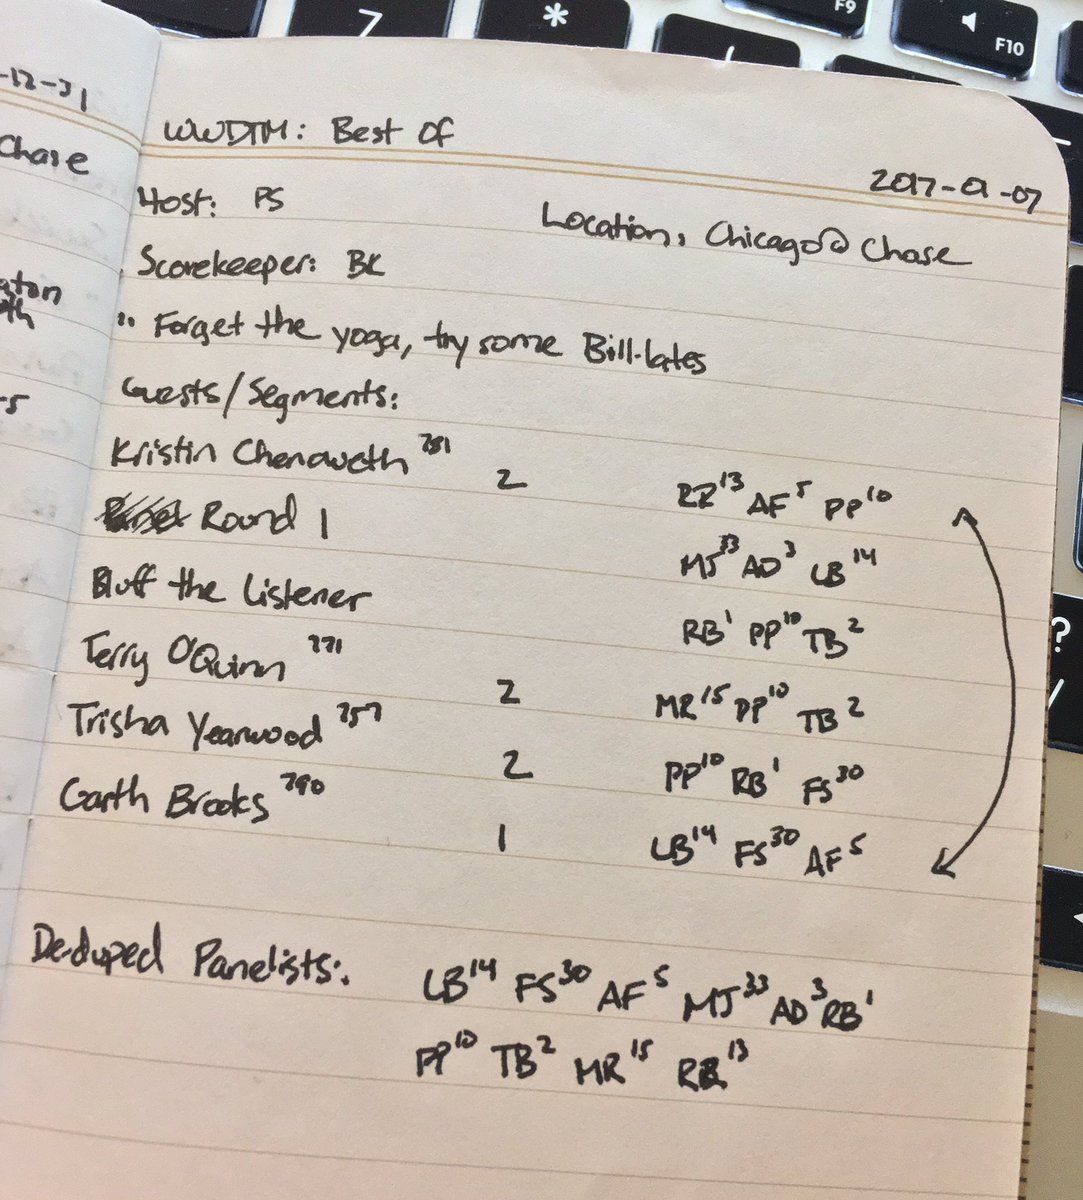 7
*
F9
F10
-12-31
Chase
WWDTM: Best Of
2017-01-07
Host: PS
Location: Chicago @ Chase
Scorekeeper: BK
" Forget the yoga, try some Bill-lates
Guests/Segments:
Kristin Chenoweth 781 2 RR13 AF5 PP10
Round 1 MJ33 AD3 LB14
Bluff the Listener RB1 PP10 TB2
Terry O'Quinn 771 2 MR15 PP10 TB2
Trisha Yearwood 757 2 PP10 RB1 FS30
Garth Brooks 790 1 LB14 FS30 AF5
De-duped Panelists: LB14 FS30 AF5 MJ33 AD3 RB1
PP10 TB2 MR15 RR13
?
/